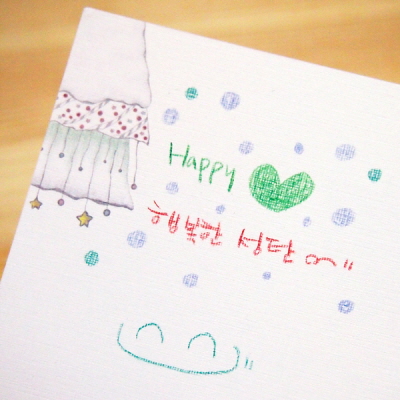 Happy
행복한 성탄